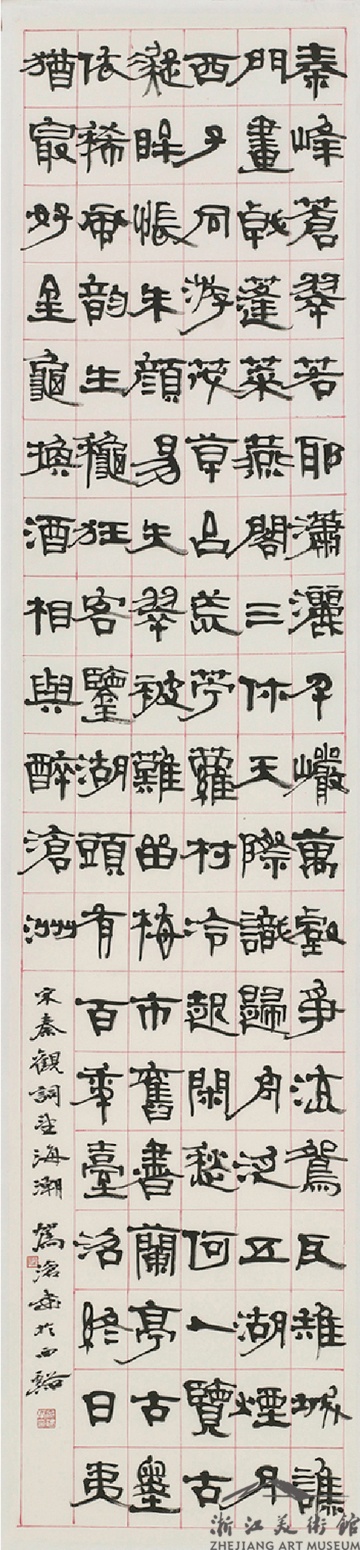 秦峰蒼翠若耶瀟灑千巖萬壑爭流鴛瓦雉城譙
門畫戟蓬萊燕閣三休天際識歸舟泛五湖煙月
西子同游茂草台荒苧蘿村冷起閑愁何人覽古
凝眸悵朱顏易失翠被難留梅市舊書蘭亭古墨
依稀風韻生秋狂客鑒湖頭有百年臺沼終日夷
猶最好金龜換酒相與醉滄洲
宋秦觀詞望海潮 滄書於西谿
浙江美術館
ZHEJIANG ART MUSEUM